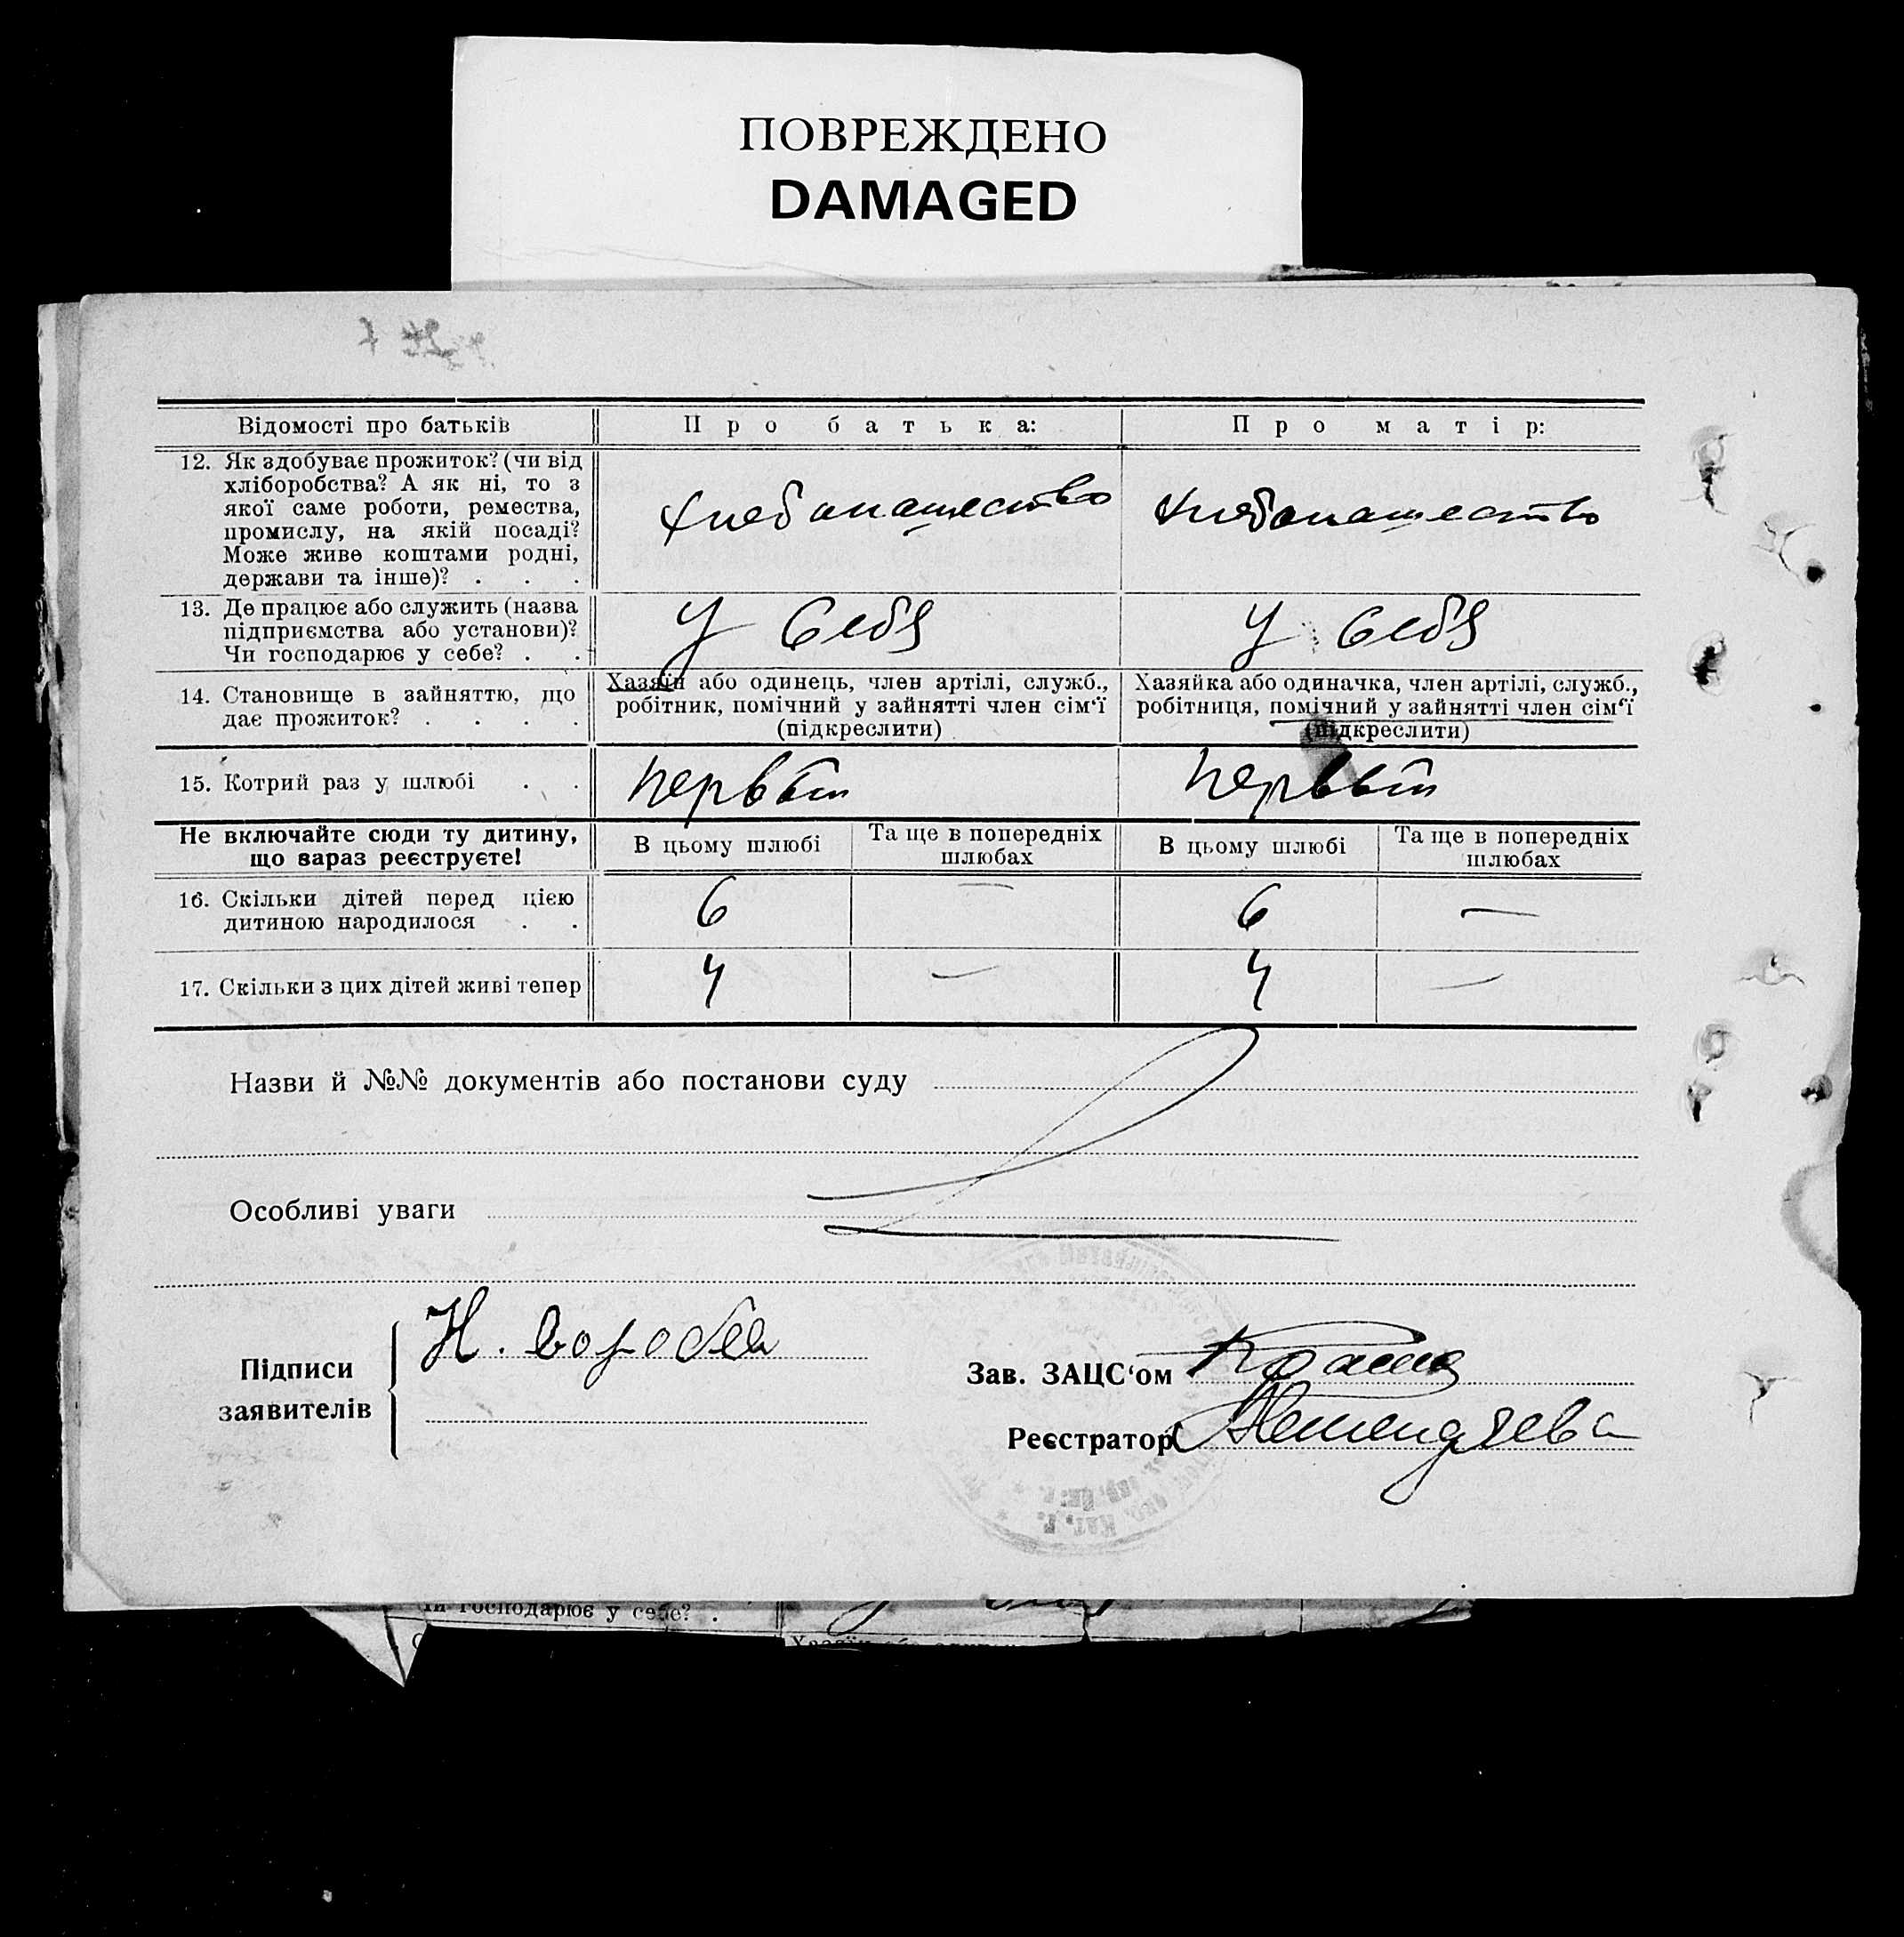 ПОВРЕЖДЕНО
DAMAGED
Відомості про батьків
Про батька:
Про матір:
12. Як здобуває прожиток? (чи від
хліборобства? А як ні, то з
якої саме роботи, ремества,
промислу, на якій посаді?
Може живе коштами родні,
держави та інше)? . . .
хлебопашество
хлебопашество
13. Де працює або служить (назва
підприємства або установи)?
Чи господарює у себе? . .
У себя
У себя
14. Становище в зайняттю, що
дає прожиток? . . . .
Хазяїн або одинець, член артілі, служб.,
робітник, помічний у зайнятті член сім'ї
(підкреслити)
Хазяйка або одиначка, член артілі, служб.,
робітниця, помічний у зайнятті член сім'ї
(підкреслити)
15. Котрий раз у шлюбі . .
первый
первый
Не включайте сюди ту дитину,
що зараз реєструєте!
В цьому шлюбі
Та ще в попередніх
шлюбах
В цьому шлюбі
Та ще в попередніх
шлюбах
16. Скільки дітей перед цією
дитиною народилося . .
6
—
6
—
17. Скільки з цих дітей живі тепер
4
—
4
—
Назви й №№ документів або постанови суду
Особливі уваги
Підписи
заявителів
Н.
Зав. ЗАЦС'ом
Реєстратор
Чи господарює у себе? .